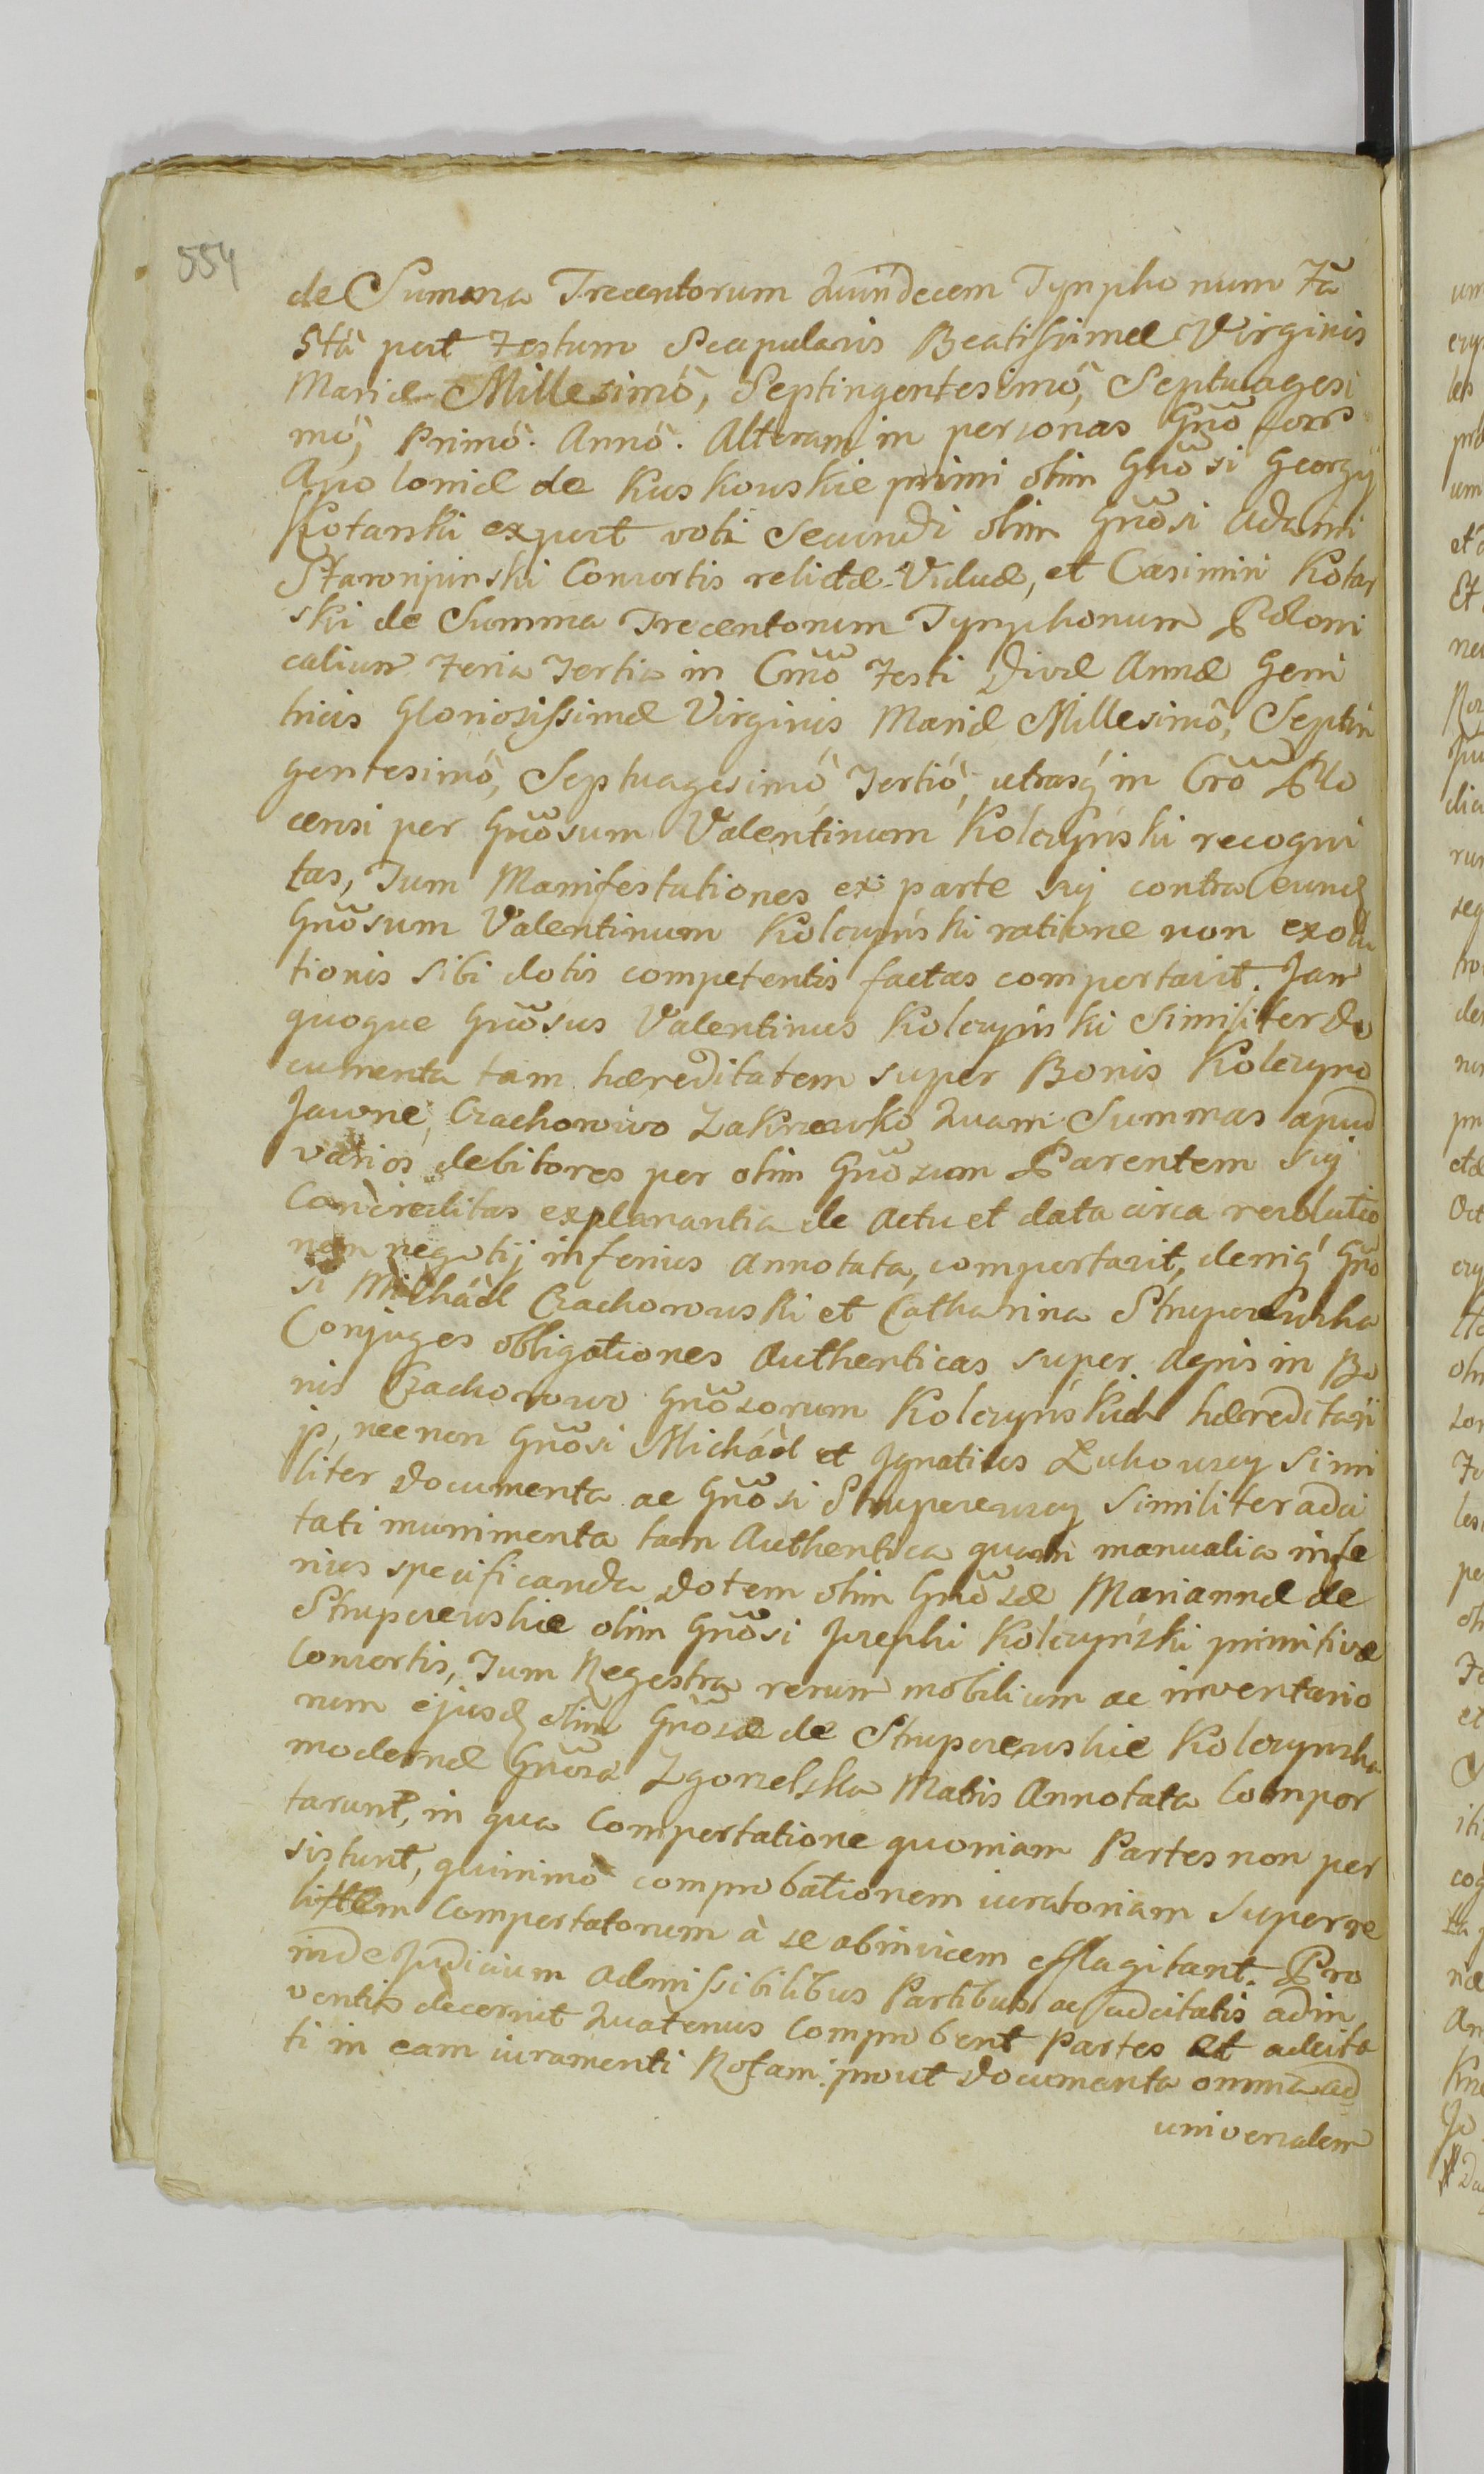 554
de Summa Trecentorum Quindecem Tynpho num Fã
5tã post Festum Scapularis Beatissimæ Virginis
Mariæ Millesimô, Septingentesimô, Septuagesi
mô, Primô. Annô. Alteram in personas Gnõ
Apo loniæ de Kuskowskie primi olim Gnõsi Georgij
Kotarski expost voti Secundi olim Gnõsi Adami
Consortis relictæ Viduæ, et Casimiri Kotar
ski de Summa Trecentorum Tynphonum Poloni
calium Feria Tertia in Crño Festi Divæ Annæ Geni
tricis Gloriosissimæ Virginis Mariæ Millesimô, Septin
gentesimô, Septuagesimô Tertiô, utrasq́ in Crõ Plo
censi per Gnõsum Valentinum Kolczyński recogni
tas, Tum Manifestationes ex parte sui contra eund
Gnõsum Valentinum Kolczyński ratione non exolu
tionis sibi dotis competentis factas comportavit. Jam
quoque Gnõsus Valentinus Kolczyński Similiter Do
cumenta tam hæreditatem super Bonis Kolczyno
Jawne, Czachorowo Zakrzewko Quam Summas apud
varios debitores per olim Gnõsum Parentem sui
Concreditas explanantia de Actu et data circa revolutio
nem negotij inferius Annotata, comportavit, deniq́ Gnõ
si Michäel Czachorowski et Catharina Strupczewska
Conjuges obligationes Authenticas super Agris in Bo
nis Czachorowo Gnõsorum Kolczyńskich hæreditarij
js, necnon Gnõsi Michäel et Ignatius Zukowscy Simi
liter Documenta ac Gnõsi Strupczewscy Similiter adci
tati munimenta tam Authentica quam manualia infe
rius specificanda Dotem olim Gnõsæ Mariannæ de
Strupczewskie olim Gnõsi Josephi Kolczyński primitivæ
Consortis, Tum Regestra rerum mobilium ac inventario
rum ejusd olim Gnõsæ de Strupczewskie Kolczynska
modernæ Gnõsæ Zgorzelska Matris Annotata Compor
tarunt, in qua Comportatione quoniam Partes non per
sistunt, quinimo comprobationem iuratoriam super re
Comportatorum à se abinvicem efflagitant. Pro
inde Judicium Admissibilibus Partibus ac adcitatis adin
ventis decernit Quatenus Comprobent Partes et adcita
ti in eam iuramenti Rotam: prout Documenta omnia ad
universalem